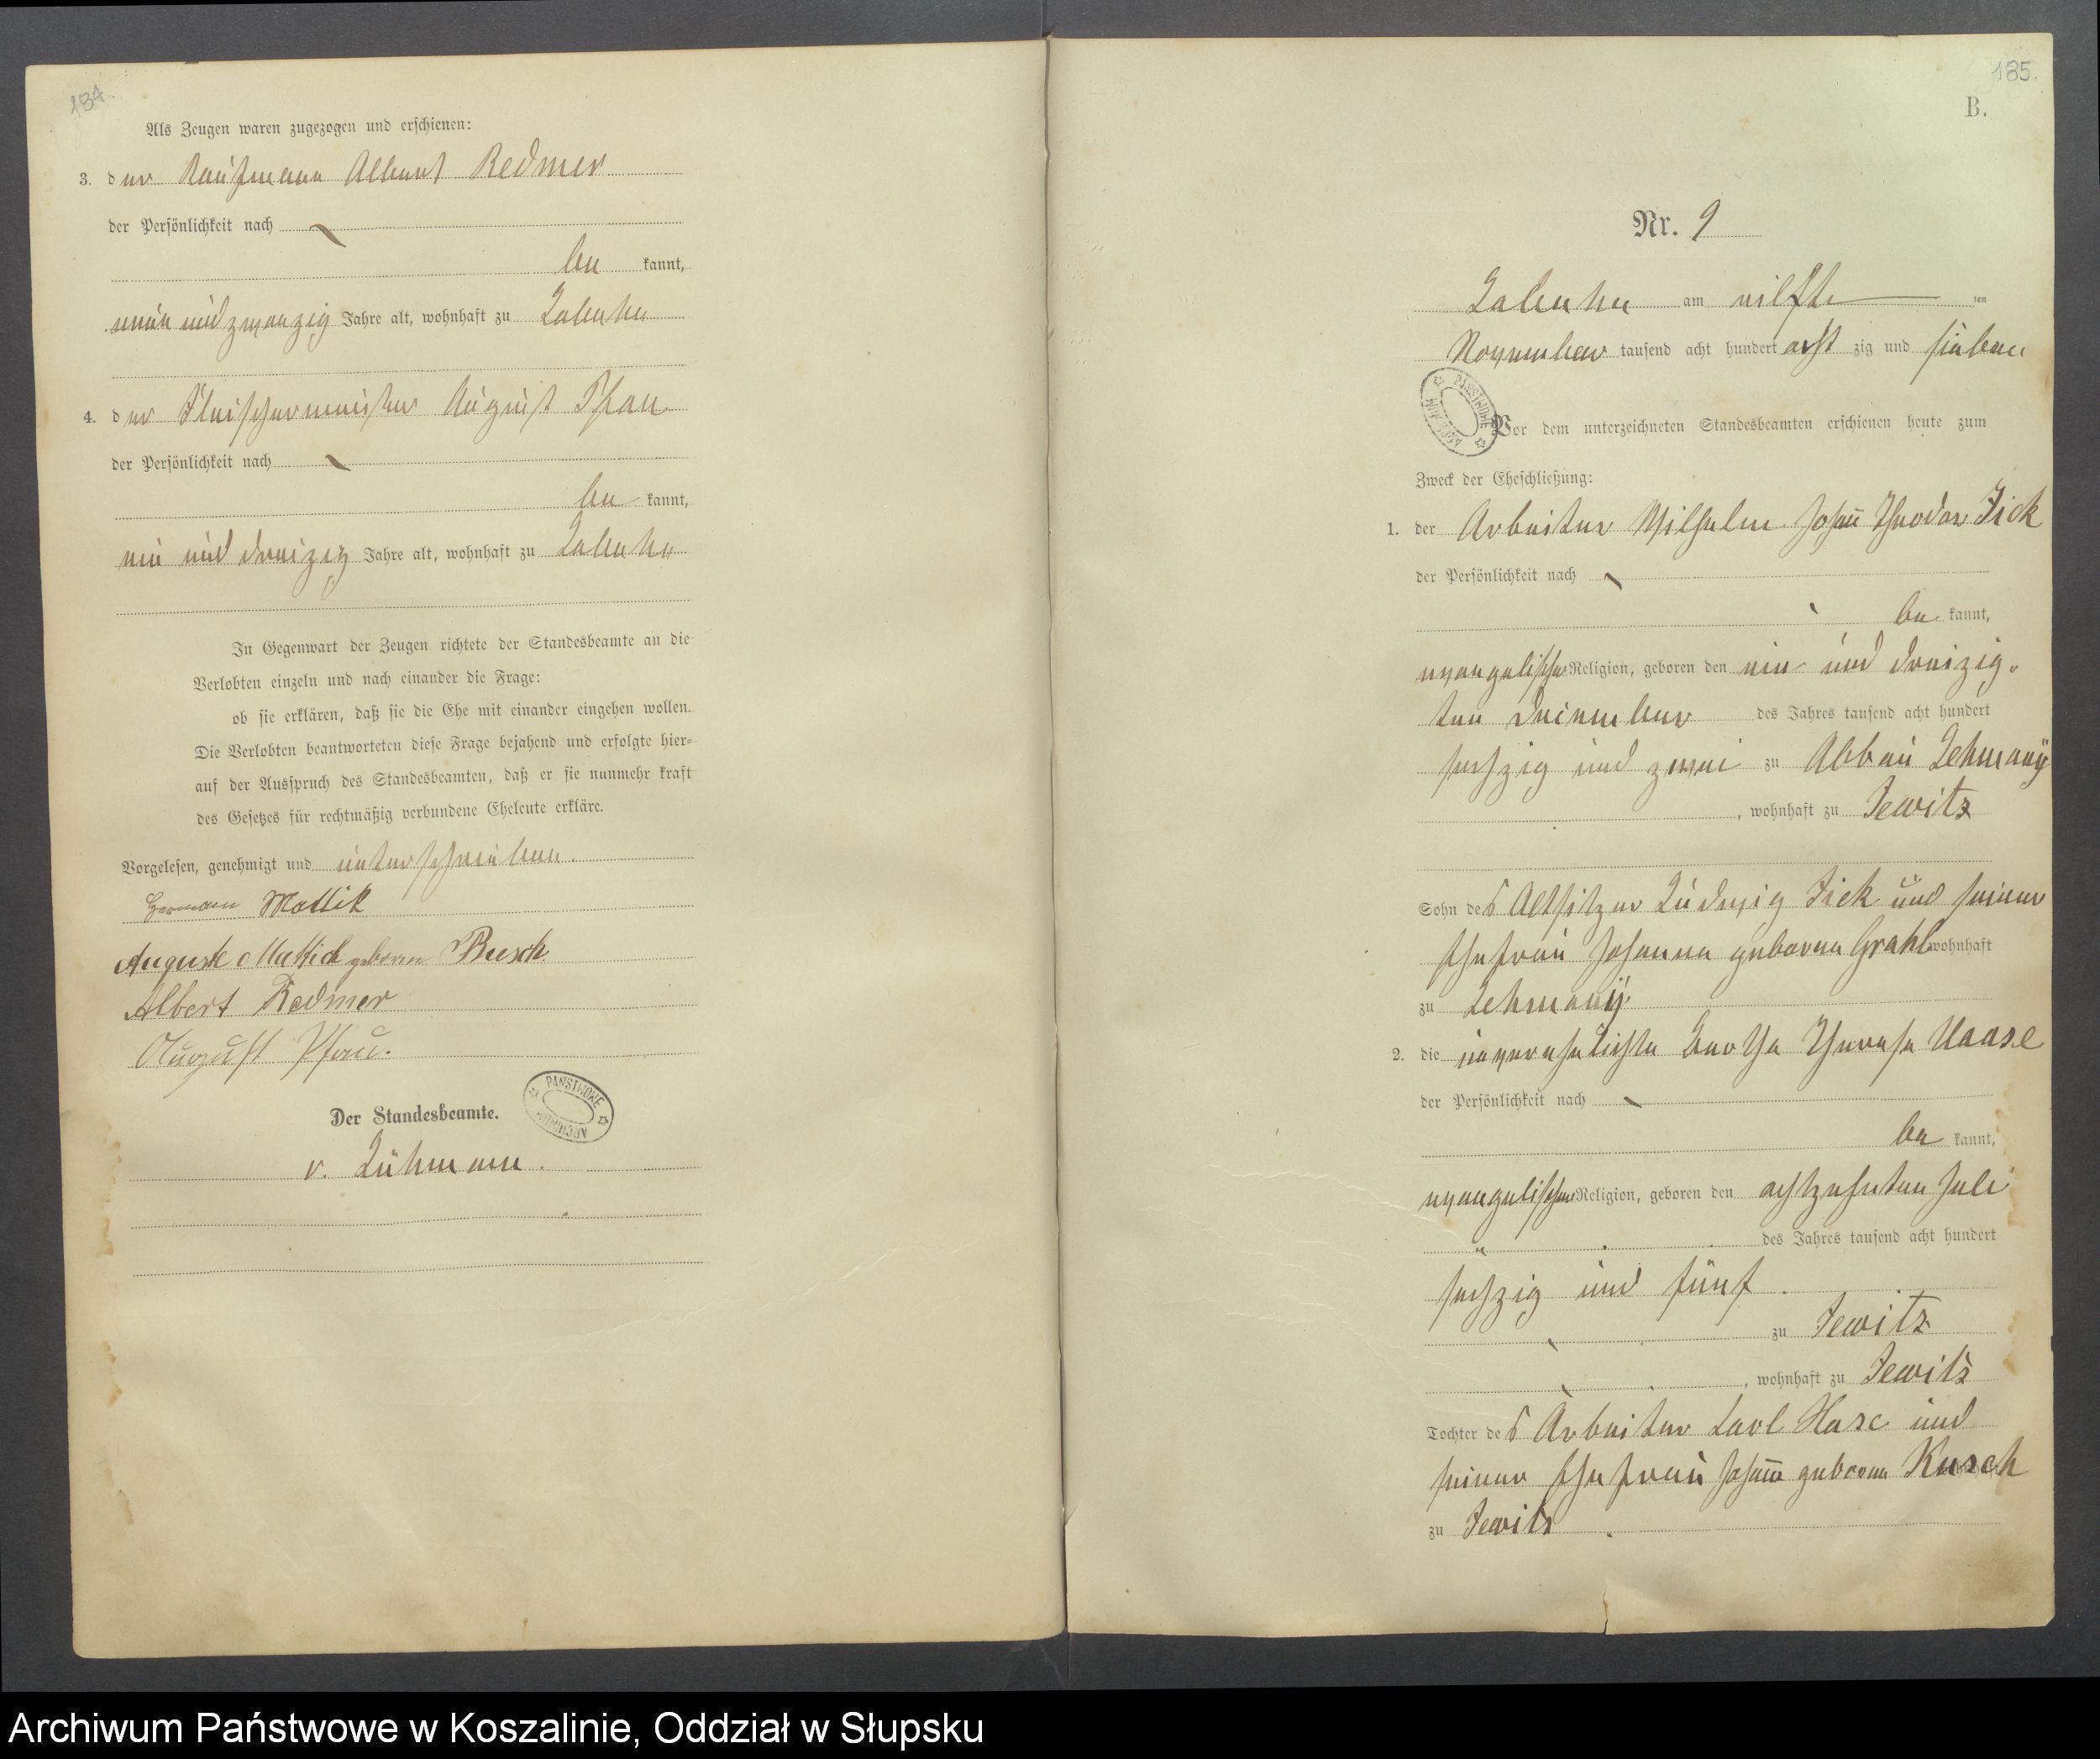 184.
Als Zeugen waren zugezogen und erschienen:
3. der Kaufmann Albert Redmer
der Persönlichkeit nach
be kannt,
neun und zwanzig Jahre alt, wohnhaft zu Labuhn
4. der Fleischermeister August Pfau
der Persönlichkeit nach
be kannt,
ein und dreizig Jahre alt, wohnhaft zu Labuhn
In Gegenwart der Zeugen richtete der Standesbeamte an die
Verlobten einzeln und nach einander die Frage:
ob sie erklären, daß sie die Ehe mit einander eingehen wollen.
Die Verlobten beantworteten diese Frage bejahend und erfolgte hier-
auf der Ausspruch des Standesbeamten, daß er sie nunmehr kraft
des Gesetzes für rechtmäßig verbundene Eheleute erkläre.
Vorgelesen, genehmigt und unterschrieben.
Herman Mattik
Auguste Mattick geborene Busch
Albert Redmer
August Pfau.
Der Standesbeamte.
v. Lühmann.
185.
B.
Nr. 9
Labuhn am eilfte ten
November tausend acht hundert acht zig und sieben
Vor dem unterzeichneten Standesbeamten erschienen heute zum
Zweck der Eheschließung:
1. der Arbeiter Wilhelm Johan̄ Theodor Fick
der Persönlichkeit nach
be kannt,
evangelischer Religion, geboren den ein und dreizig-
ten Dezember des Jahres tausend acht hundert
sechzig und zwei zu Abbau Zehmany
, wohnhaft zu Jewitz
Sohn des Altsitzer Ludwig Fick und seiner
Ehefrau Johanna geborene Grahl wohnhaft
zu Zehmany
2. die unverehelichte Bertha Therese Haase
der Persönlichkeit nach
be kannt,
evangelischer Religion, geboren den achtzehnten Juli
des Jahres tausend acht hundert
sechzig und fünf.
zu Jewitz
, wohnhaft zu Jewitz
Tochter des Arbeiter Carl Hase und
seiner Ehefrau Johan̄a geborene Kusch
zu Jewitz
PAŃSTWOWE ARCHIWUM
Archiwum Państwowe w Koszalinie, Oddział w Słupsku